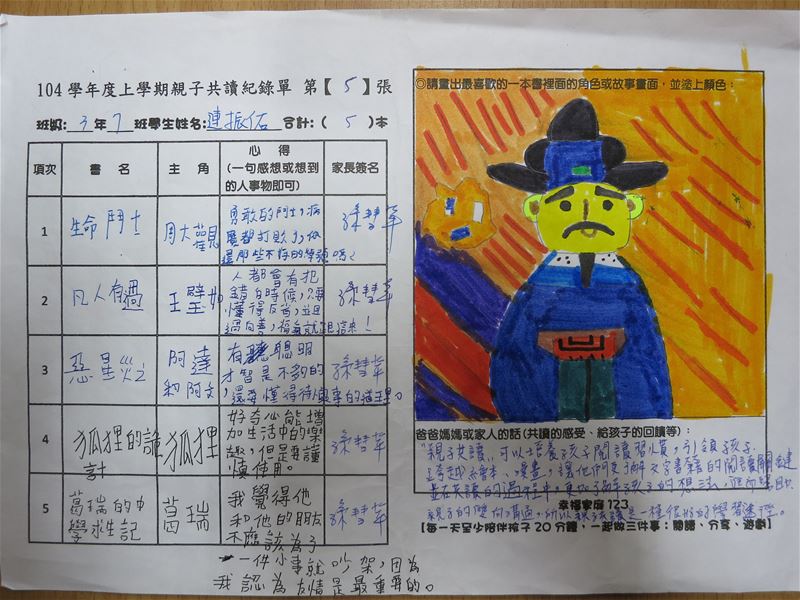 104 學年度上學期親子共讀紀錄單 第【5】張
班級: 3 年 7 班學生姓名:連振佑 合計:( 5 )本
項次 書 名 主 角 心 得
(一句感想或想到的人事物即可) 家長簽名
1 生命鬥士 周大觀
勇敢的鬥士,病
魔都打敗了,你
還那些不存的
孫慧苹
2 凡人有過
人都會有犯
錯的時候,只要
懂得反省,並且
孫慧苹
3 惡星災 阿達
和阿文
有聰明
才智是不夠的
還要懂得待
孫慧苹
4 狐狸的詭
計
狐狸
好奇心能增
加生活中的樂
趣,但是要謹
慎使用。
孫慧苹
5 葛瑞的中
學求生記
葛瑞
我覺得他
和他的朋友
不應該為了
一件小事就吵架,因為
我認為友情是最重要的。
孫慧苹
◎請畫出最喜歡的一本書裡面的角色或故事畫面,並塗上顏色:
爸爸媽媽或家人的話(共讀的感受、給孩子的回饋等):
親子共讀,可以培養孩子閱讀習慣,引領孩子
跨越繪本、漫畫,讓他們更了解文字書籍的閱讀關鍵
並在共讀的過程中,更加了解孩子的想法,
幸福家庭 123
親子的雙向溝通,所以親子共讀是一種很好的學習
【每一天至少陪伴孩子 20 分鐘,一起做三件事:閱讀、分享、遊戲】